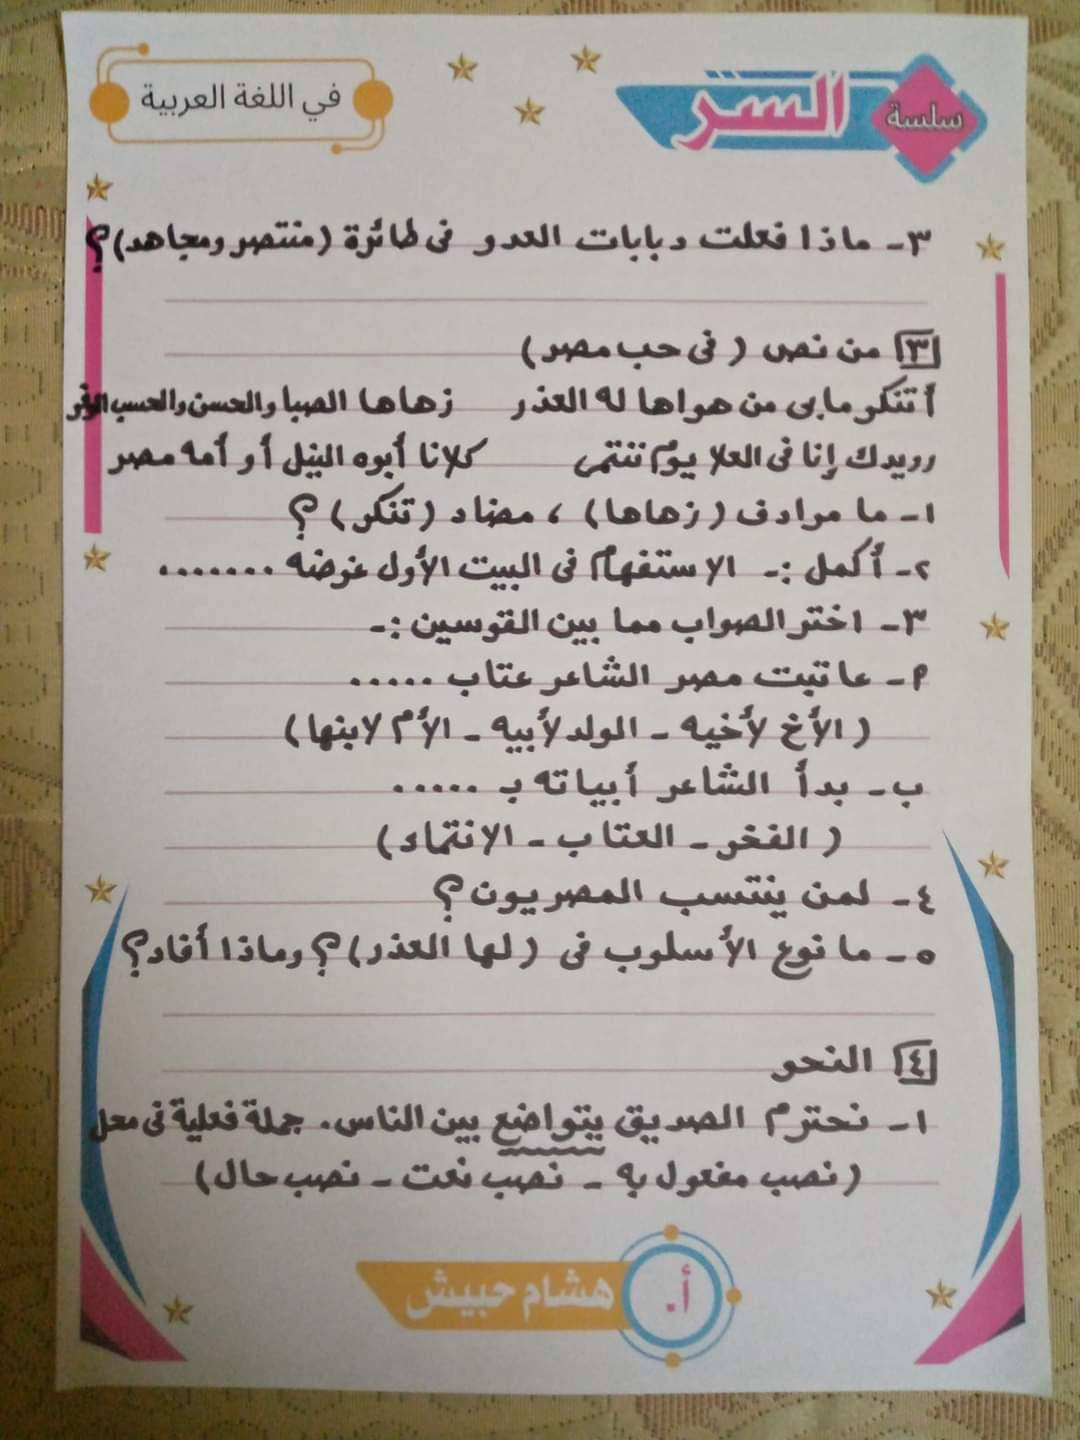 سلسة
السر
في اللغة العربية
٣- ماذا فعلت دبابات العدو فى طائرة (منتصر ومجاهد)؟
٣ من نص (فى حب مصر)
أتنكر مابى من هواها له العذر زهاها الصبا والحسن والحسب الوفر
رويدك إنا فى العلا يوم ننتمى كلانا أبوه النيل أو أمه مصر
١- ما مرادف (زهاها) ، مضاد (تنكر) ؟
٢- أكمل :- الاستفهام فى البيت الأول غرضه .......
٣- اختر الصواب مما بين القوسين :-
٩- عاتبت مصر الشاعر عتاب .....
(الأخ لأخيه - الولد لأبيه - الأم لابنها)
ب- بدأ الشاعر أبياته بـ .....
(الفخر - العتاب - الانتماء)
٤- لمن ينتسب المصريون؟
٥- ما نوع الأسلوب فى (لها العذر)؟ وماذا أفاد؟
٤ النحو
١- نحترم الصديق يتواضع بين الناس. جملة فعلية فى محل
(نصب مفعول به - نصب نعت - نصب حال)
أ. هشام حبيش